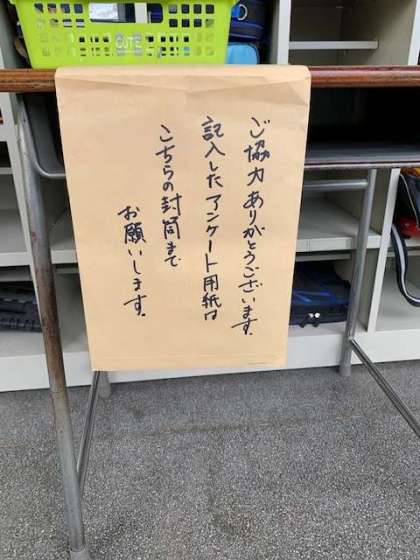 CUTE
ご協力ありがとうございます.
記入したアンケート用紙は
こちらの封筒まで
お願いします.